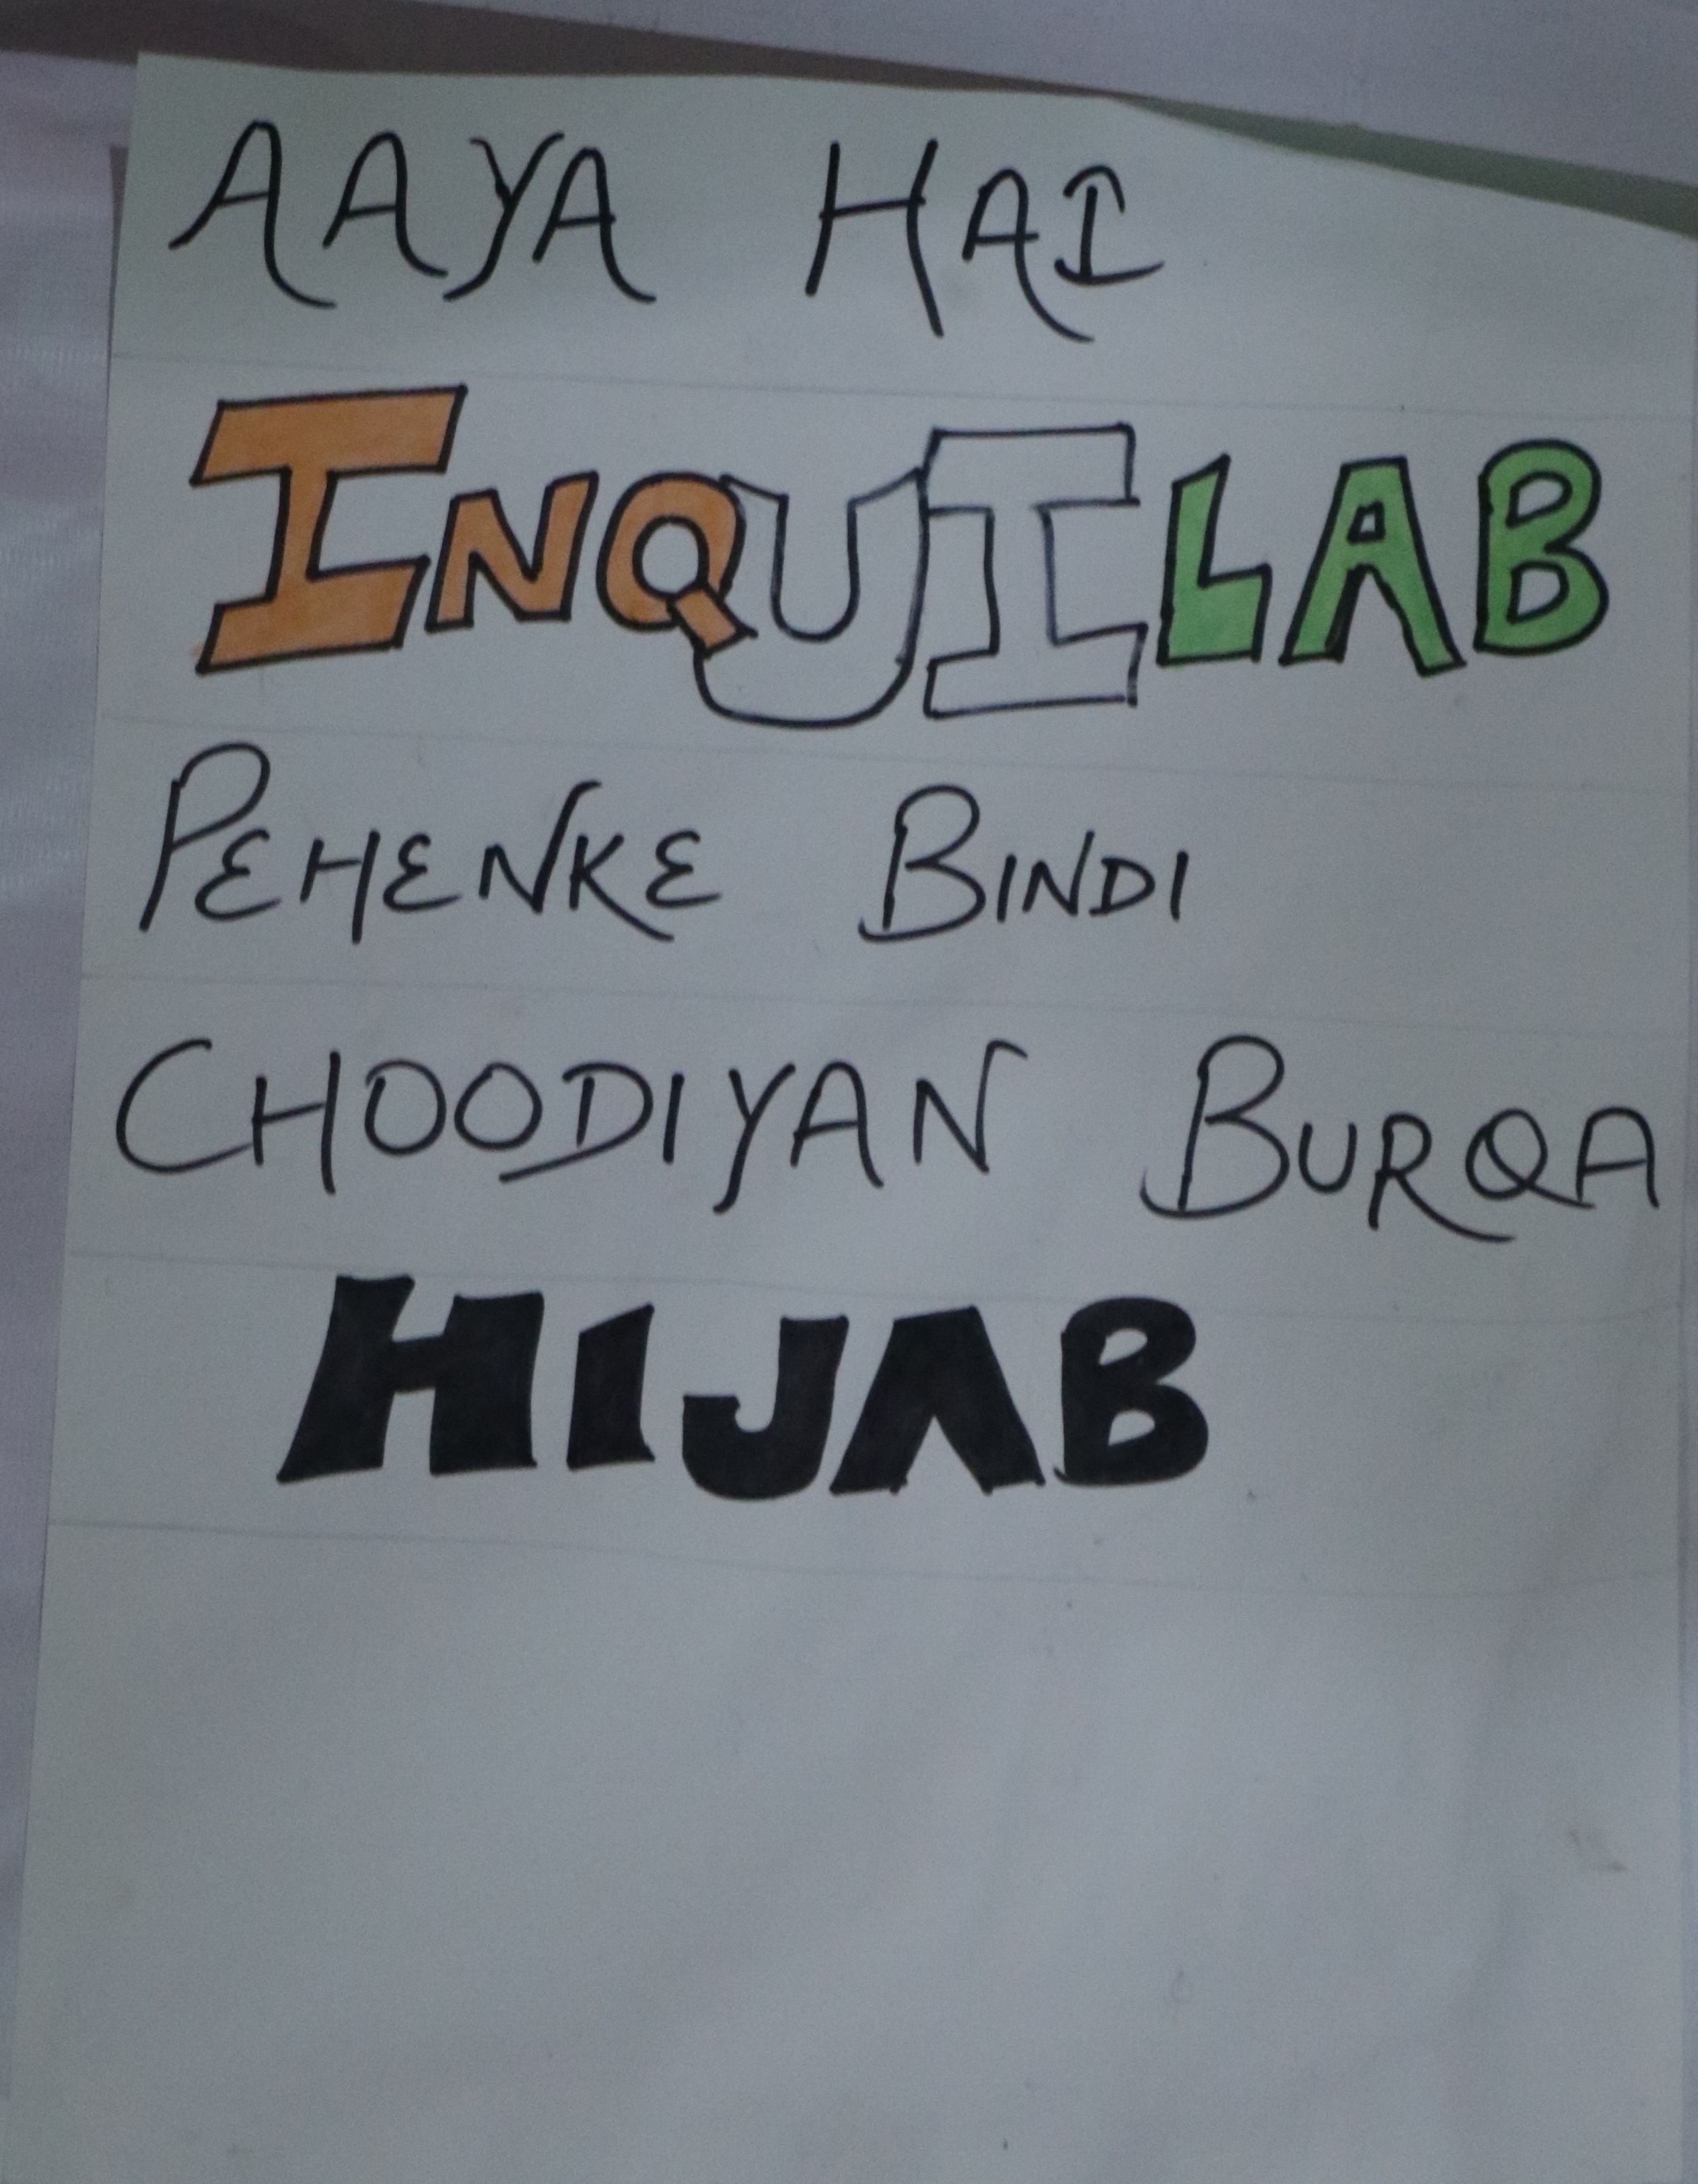 AAYA HAI
INQUILAB
PEHENKE BINDI
CHOODIYAN BURQA
HIJAB